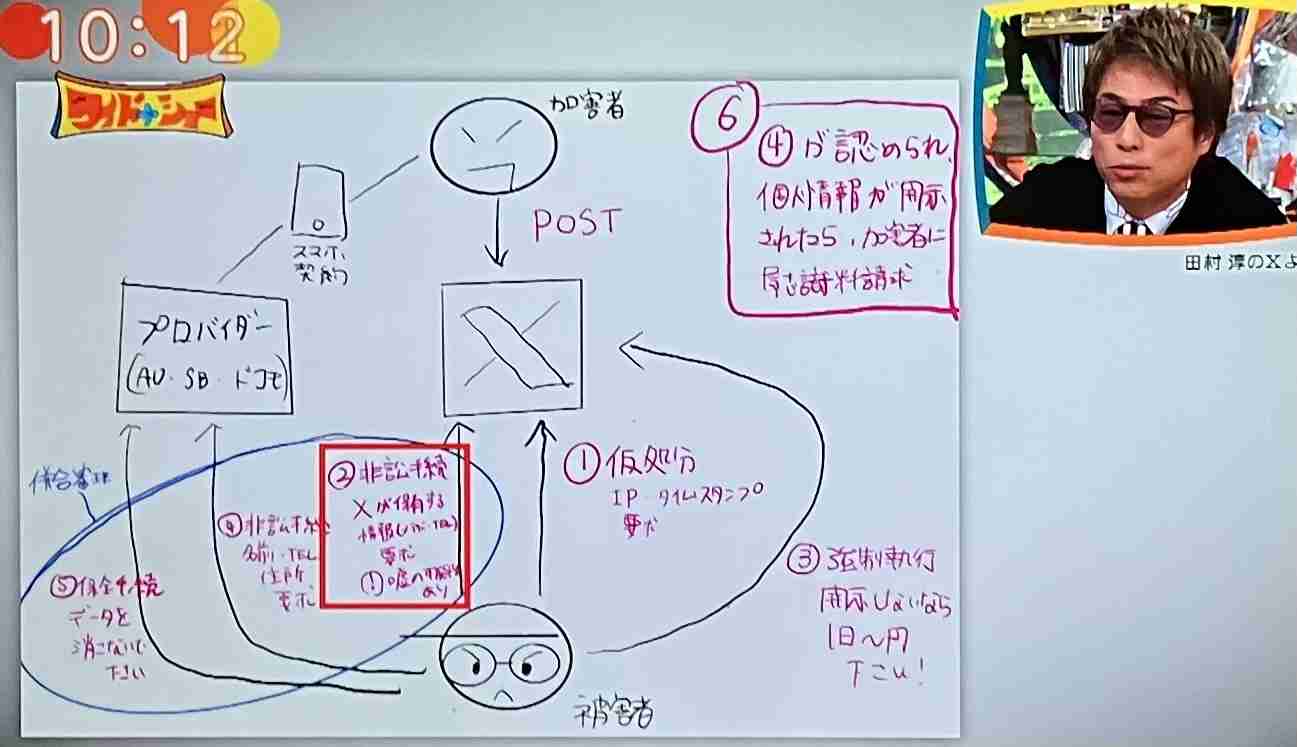 10:12
ワイドナショー
加害者
POST
スマホ
契約
プロバイダー
(AU・SB・ドコモ)
X
⑥
④が認められ、
個人情報が開示
されたら、加害者に
慰謝料請求
田村 淳のXよ
①仮処分
IP・タイムスタンプ
要求
②非訟手続
Xが保有する
情報(メアド・TEL)
要求
あり
③強制執行
開示しないなら
1日〜円
下さい!
④非訟手続
名前・TEL
住所
要求
⑤保全手続
データを
消さないで
下さい
併合審理
被害者